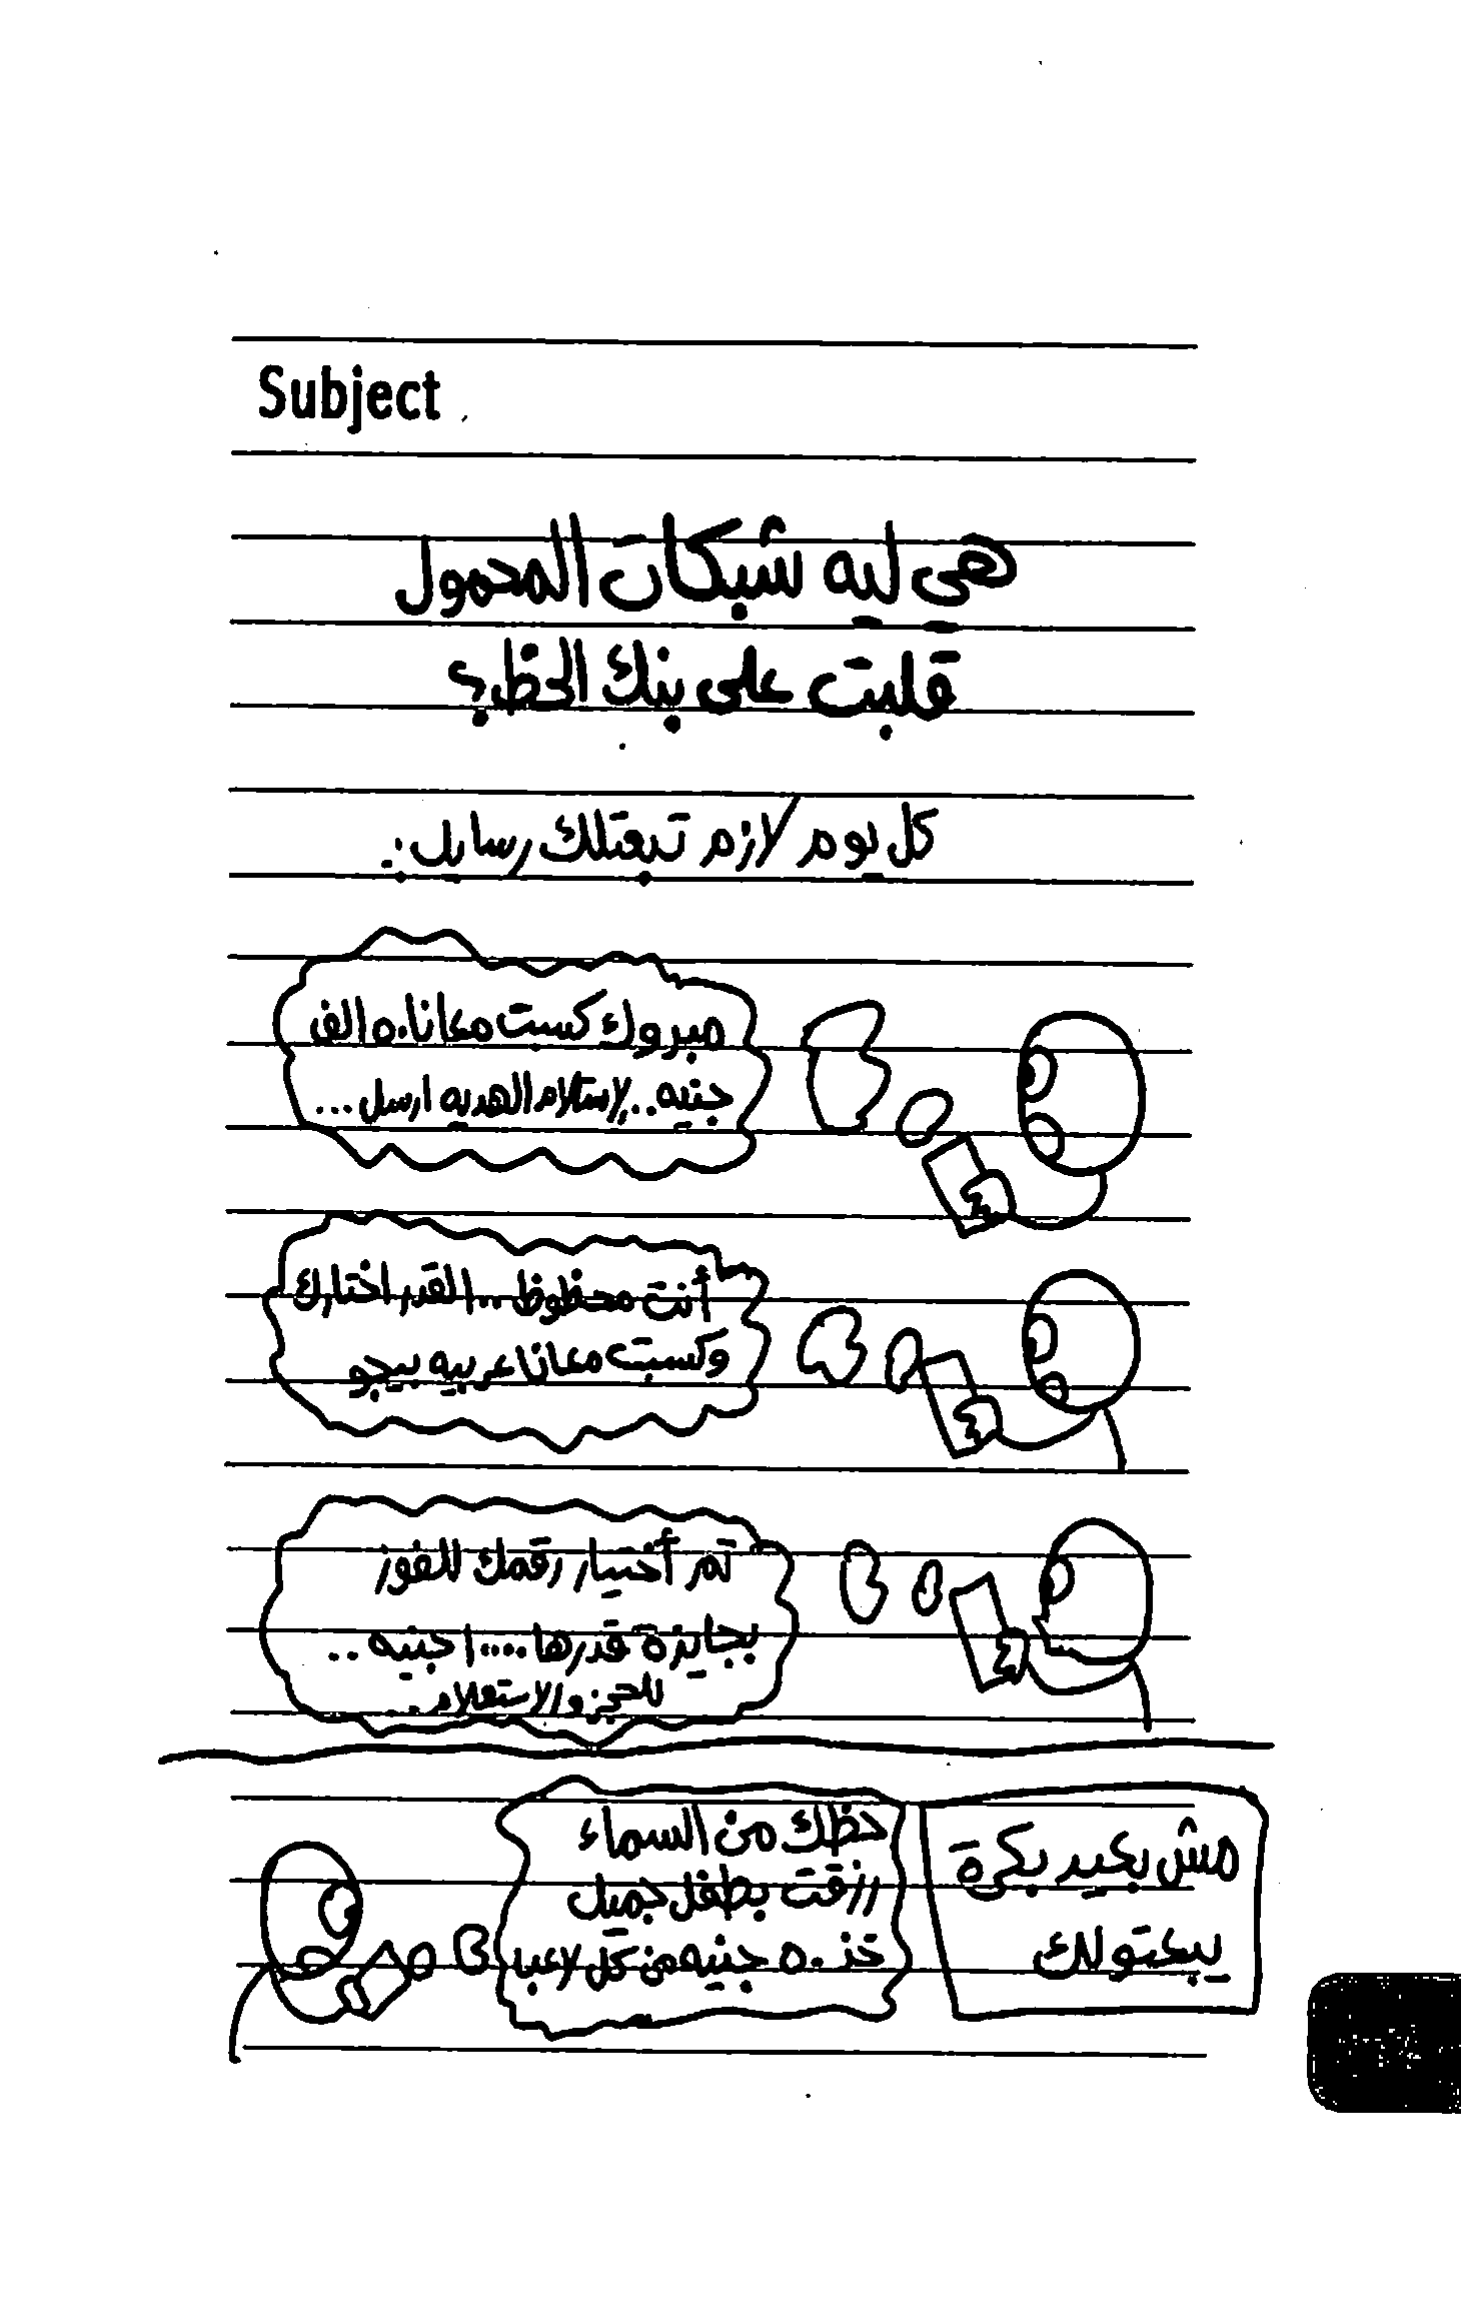 Subject
هي ليه شبكات المحمول
قلبت على بنك الحظ؟
كل يوم لازم تبعتلك رسايل :.
مبروك كسبت معانا ٥٠ الف
جنيه.. لإستلام الهديه ارسل ...
أنت محظوظ ... القدر اختارك
وكسبت معانا عربيه بيجو
تم أختيار رقمك للفوز
بجايزة قدرها ١٠٠٠٠ جنيه ..
للحجز والاستعلام ..
مش بعيد بكرة
يبعتولك
حظك من السماء
رزقت بطفل جميل
خذ ٥٠ جنيه من كل لاعب